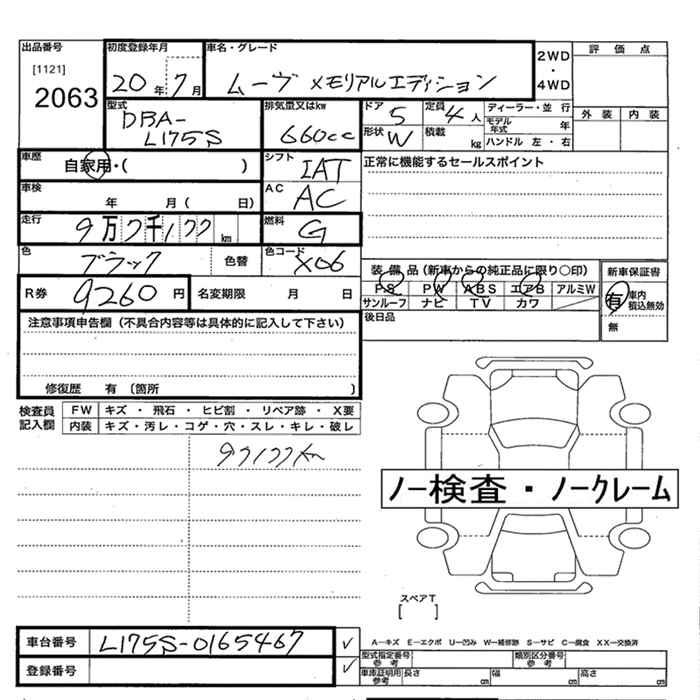 出品番号
[1121]
2063
初度登録年月
20年 7月
車名・グレード
ムーヴ メモリアルエディション
2WD
・
4WD
評価点
外装 内装
型式
DBA-
L175S
排気量又はkw
660cc
ドア 5
定員 4人
形状 W
積載 kg
ディーラー・並行
モデル年式 年
ハンドル 左・右
車歴
自家用・( )
シフト
IAT
正常に機能するセールスポイント
車検
年 月( 日)
AC
AC
走行
9万7千177km
燃料
G
色
ブラック
色替
色コード
X06
装備品(新車からの純正品に限り○印)
PS PW ABS エアB アルミW
サンルーフ ナビ TV カワ
新車保証書
有 車内積込無効
無
R券 9260円
名変期限 月 日
後日品
注意事項申告欄(不具合内容等は具体的に記入して下さい)
修復歴 有 〔箇所 〕
検査員
記入欄
FW キズ・飛石・ヒビ割・リペア跡・X要
内装 キズ・汚レ・コゲ・穴・スレ・キレ・破レ
97177km
ノー検査・ノークレーム
スペアT
[ ]
車台番号 L175S-0165467 ✓
登録番号 ✓
A－キズ E－エクボ U－凹み W－補修跡 S－サビ C－腐食 XX－交換済
型式指定番号
参考
類別区分番号
参考
車庫証明用
参考
長さ cm 幅 cm 高さ cm